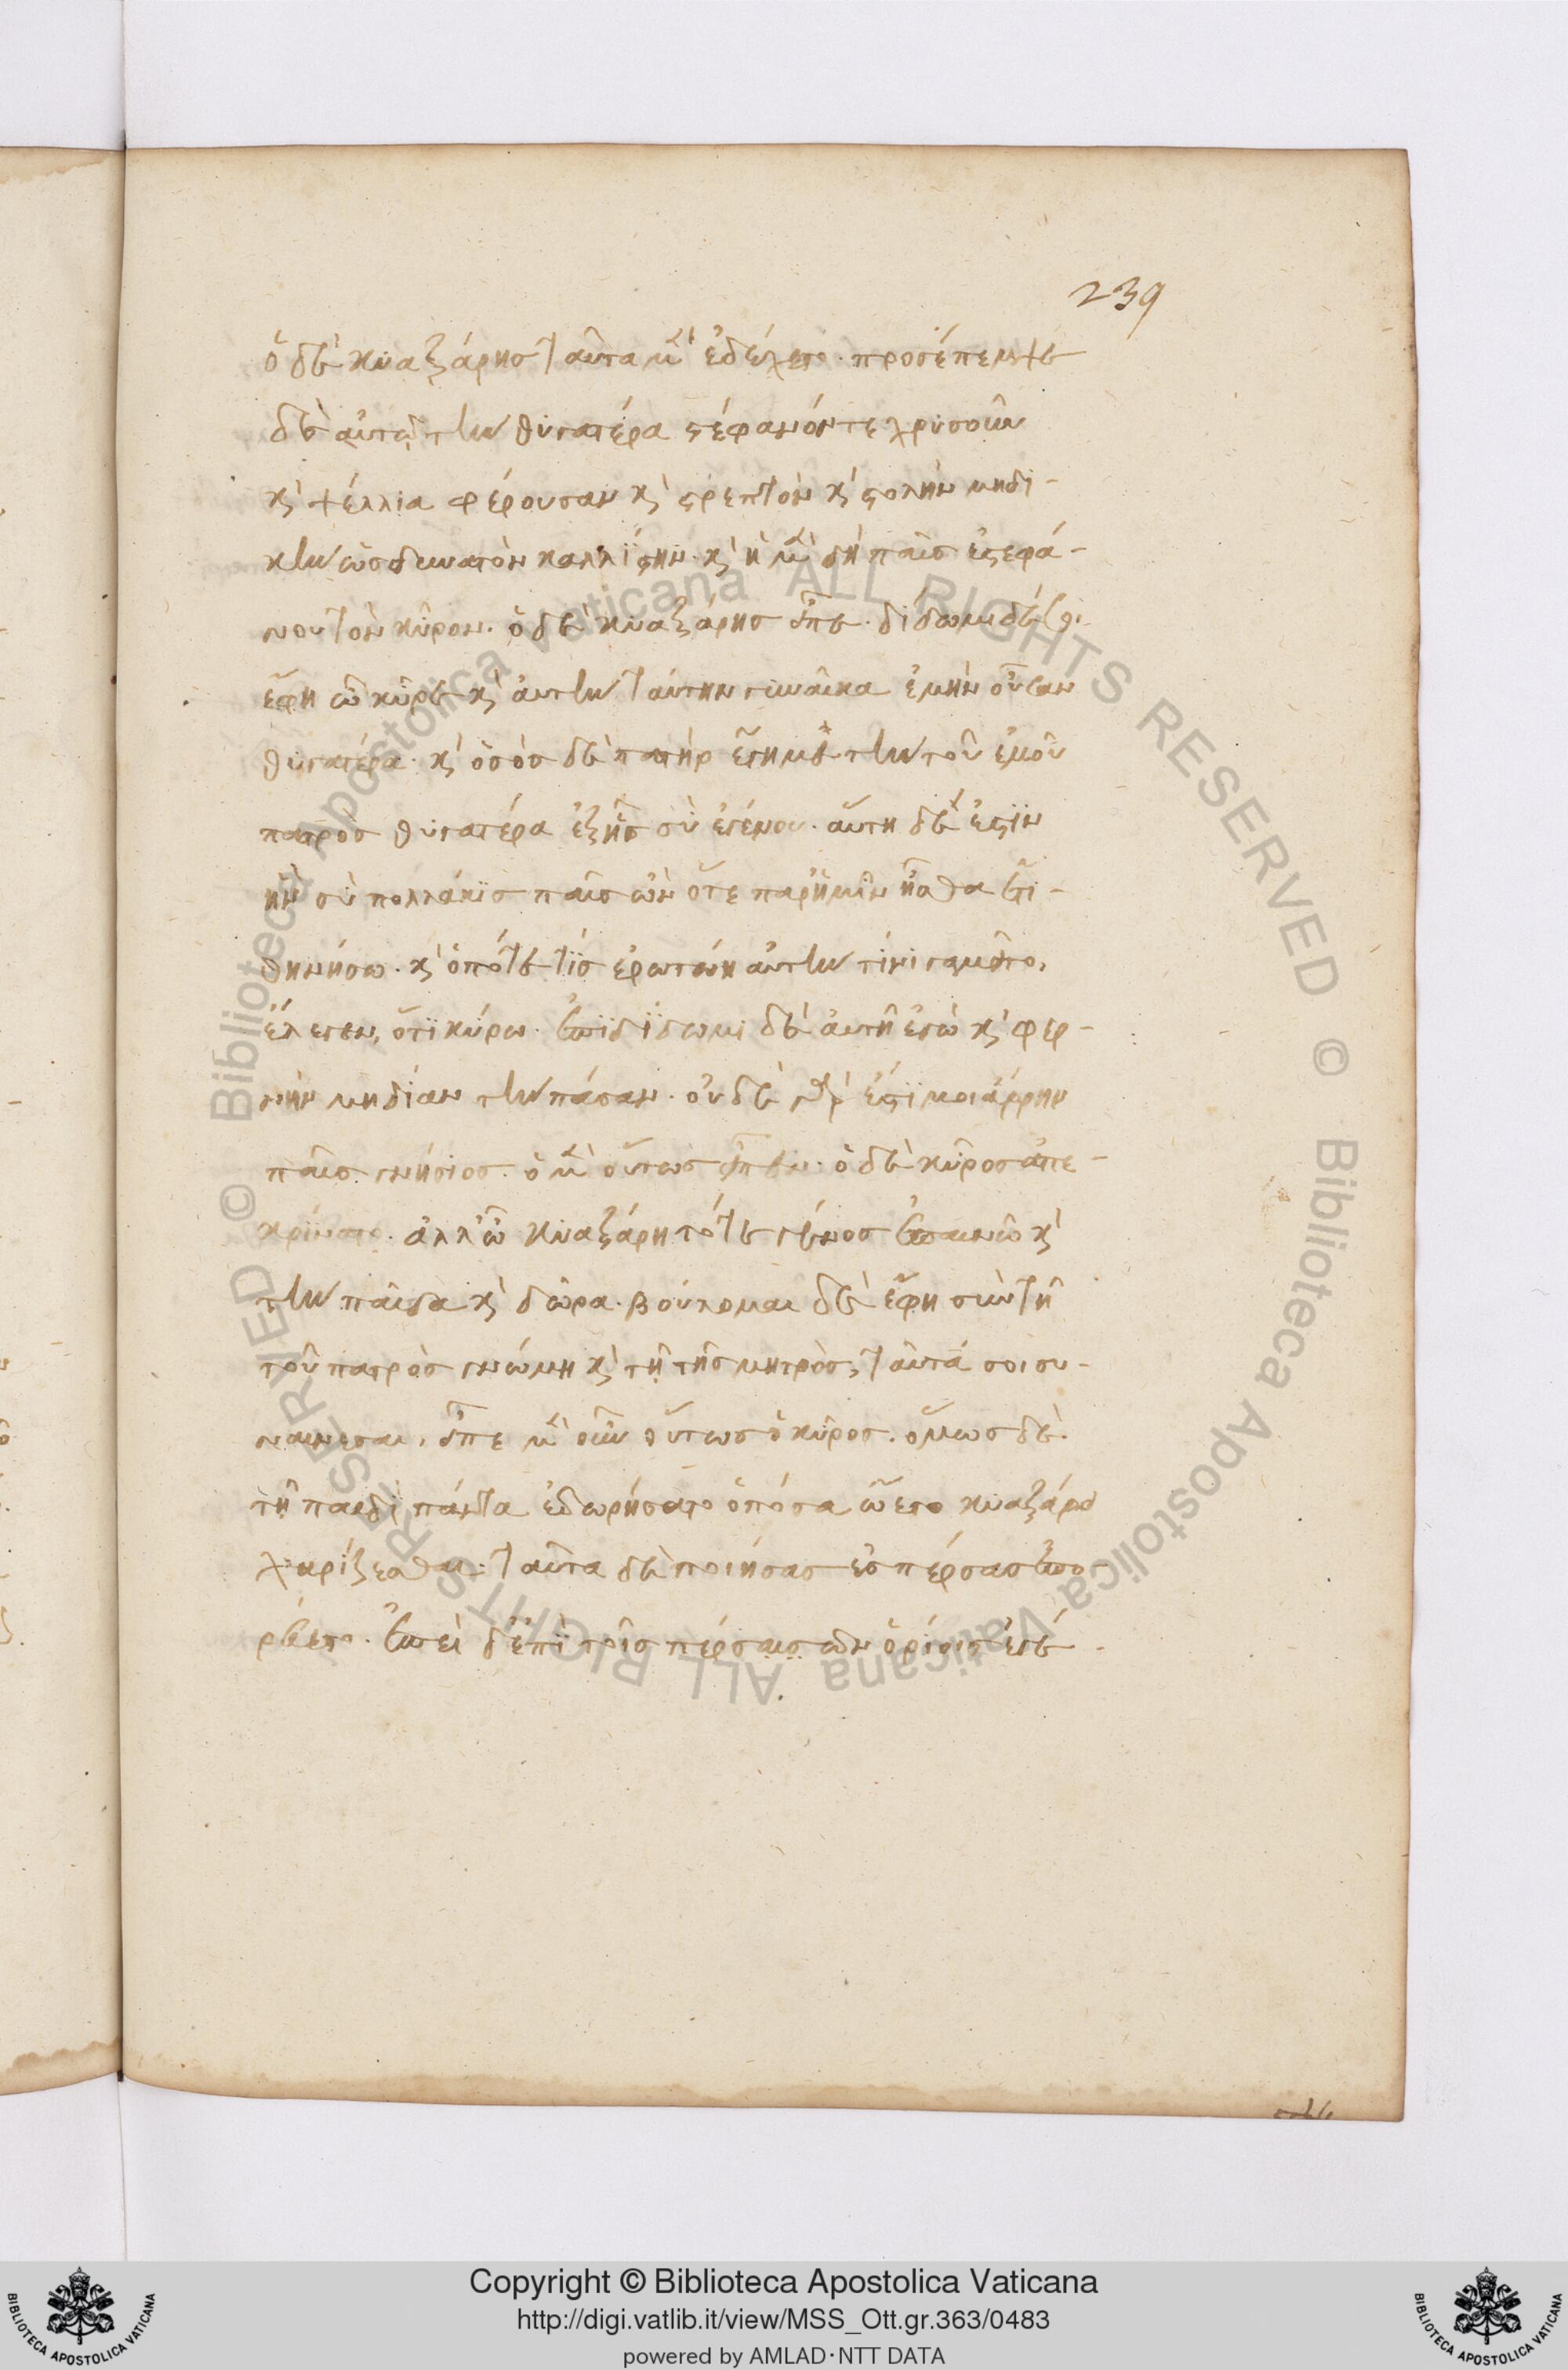 239
ὁ δὲ κυαξάρησ ταῦτα μὲν ἐδέχετο. προσέπεμψε
δὲ αὐτῶ τὴν θυγατέρα στέφανόν τε χρυσοῦν
κὶ ψέλλια φέρουσαν κὶ στρεπτὸν κὶ στολὴν μηδι-
κὴν ὡσ δυνατὸν καλλίστην. κὶ ἡ μὲν δὴ παῖσ ἐστεφά-
νου τὸν κῦρον. ὁ δὲ κυαξάρησ εἶπε. δίδωμι δέ σοι
ἔφη ὦ κῦρε κὶ αὐτὴν ταύτην γυναῖκα ἐμὴν οὖσαν
θυγατέρα. κὶ ὁ σὸσ δὲ πατὴρ ἔγημε τὴν τοῦ ἐμοῦ
πατρὸσ θυγατέρα ἐξ ἧσ σὺ ἐγένου. αὕτη δέ ἐστιν
ἣν σὺ πολλάκισ παῖσ ὢν ὅτε παρ' ἡμῖν ἦσθα ἐτι-
θηνήσω. κὶ ὁπότε τίσ ἐρωτώη αὐτὴν τίνι γαμοῖτο,
ἔλεγεν, ὅτι κύρω. ἐπιδίδωμι δὲ αὐτῆ ἐγὼ κὶ φερ-
νὴν μηδίαν τὴν πᾶσαν. οὐδὲ γὰρ ἔστι μοι ἄρρην
παῖσ γνήσιος. ὁ μὲν οὕτως εἶπεν. ὁ δὲ κῦροσ ἀπε-
κρίνατο. ἀλλ' ὦ κυαξάρη τό τε γένοσ ἐπαινῶ κὶ
τὴν παῖδα κὶ δῶρα. βούλομαι δὲ ἔφη σὺν τῆ
τοῦ πατρὸσ γνώμη κὶ τῆ τῆσ μητρὸσ, ταῦτά σοι συ-
ναινέσαι. εἶπε μὲν οὖν οὕτωσ ὁ κῦροσ. ὅμωσ δὲ
τῆ παιδὶ πάντα ἐδωρήσατο ὁπόσα ὤετο κυαξάρει
χαρίζεσθαι: ταῦτα δὲ ποιήσας ἐσ πέρσασ ἐπο-
ρεύετο. ἐπεὶ δ' ἐπὶ τοῖσ περσῶν ὁρίοισ ἐγέ-
Copyright © Biblioteca Apostolica Vaticana
http://digi.vatlib.it/view/MSS_Ott.gr.363/0483
powered by AMLAD·NTT DATA